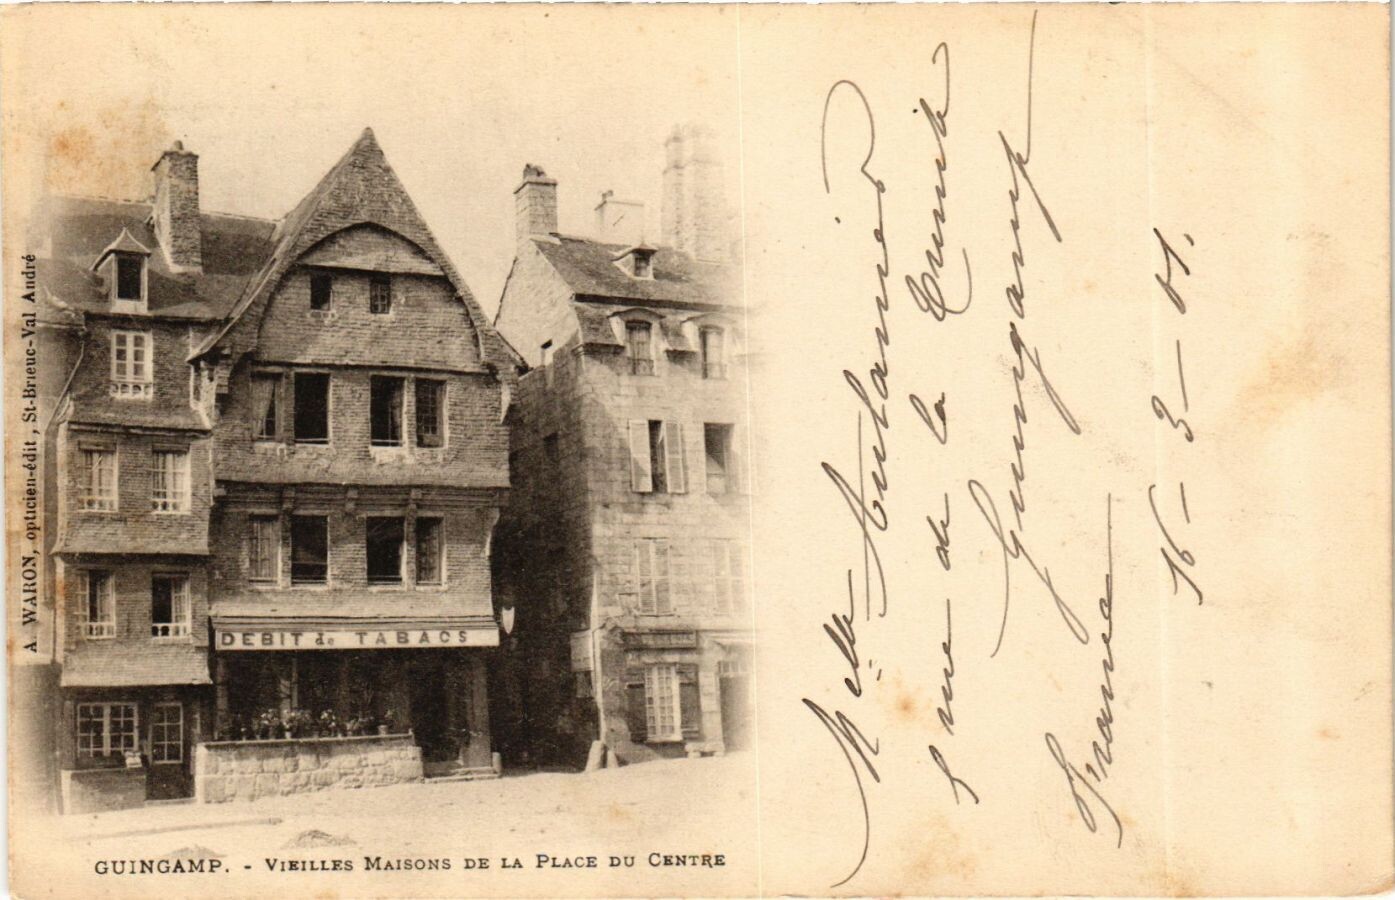 A. WARON, opticien-édit, St-Brieuc-Val André
DEBIT de TABACS
GUINGAMP. - VIEILLES MAISONS DE LA PLACE DU CENTRE
Melle Aulanier
rue de la Trinité
Guingamp
France
16-3-01.